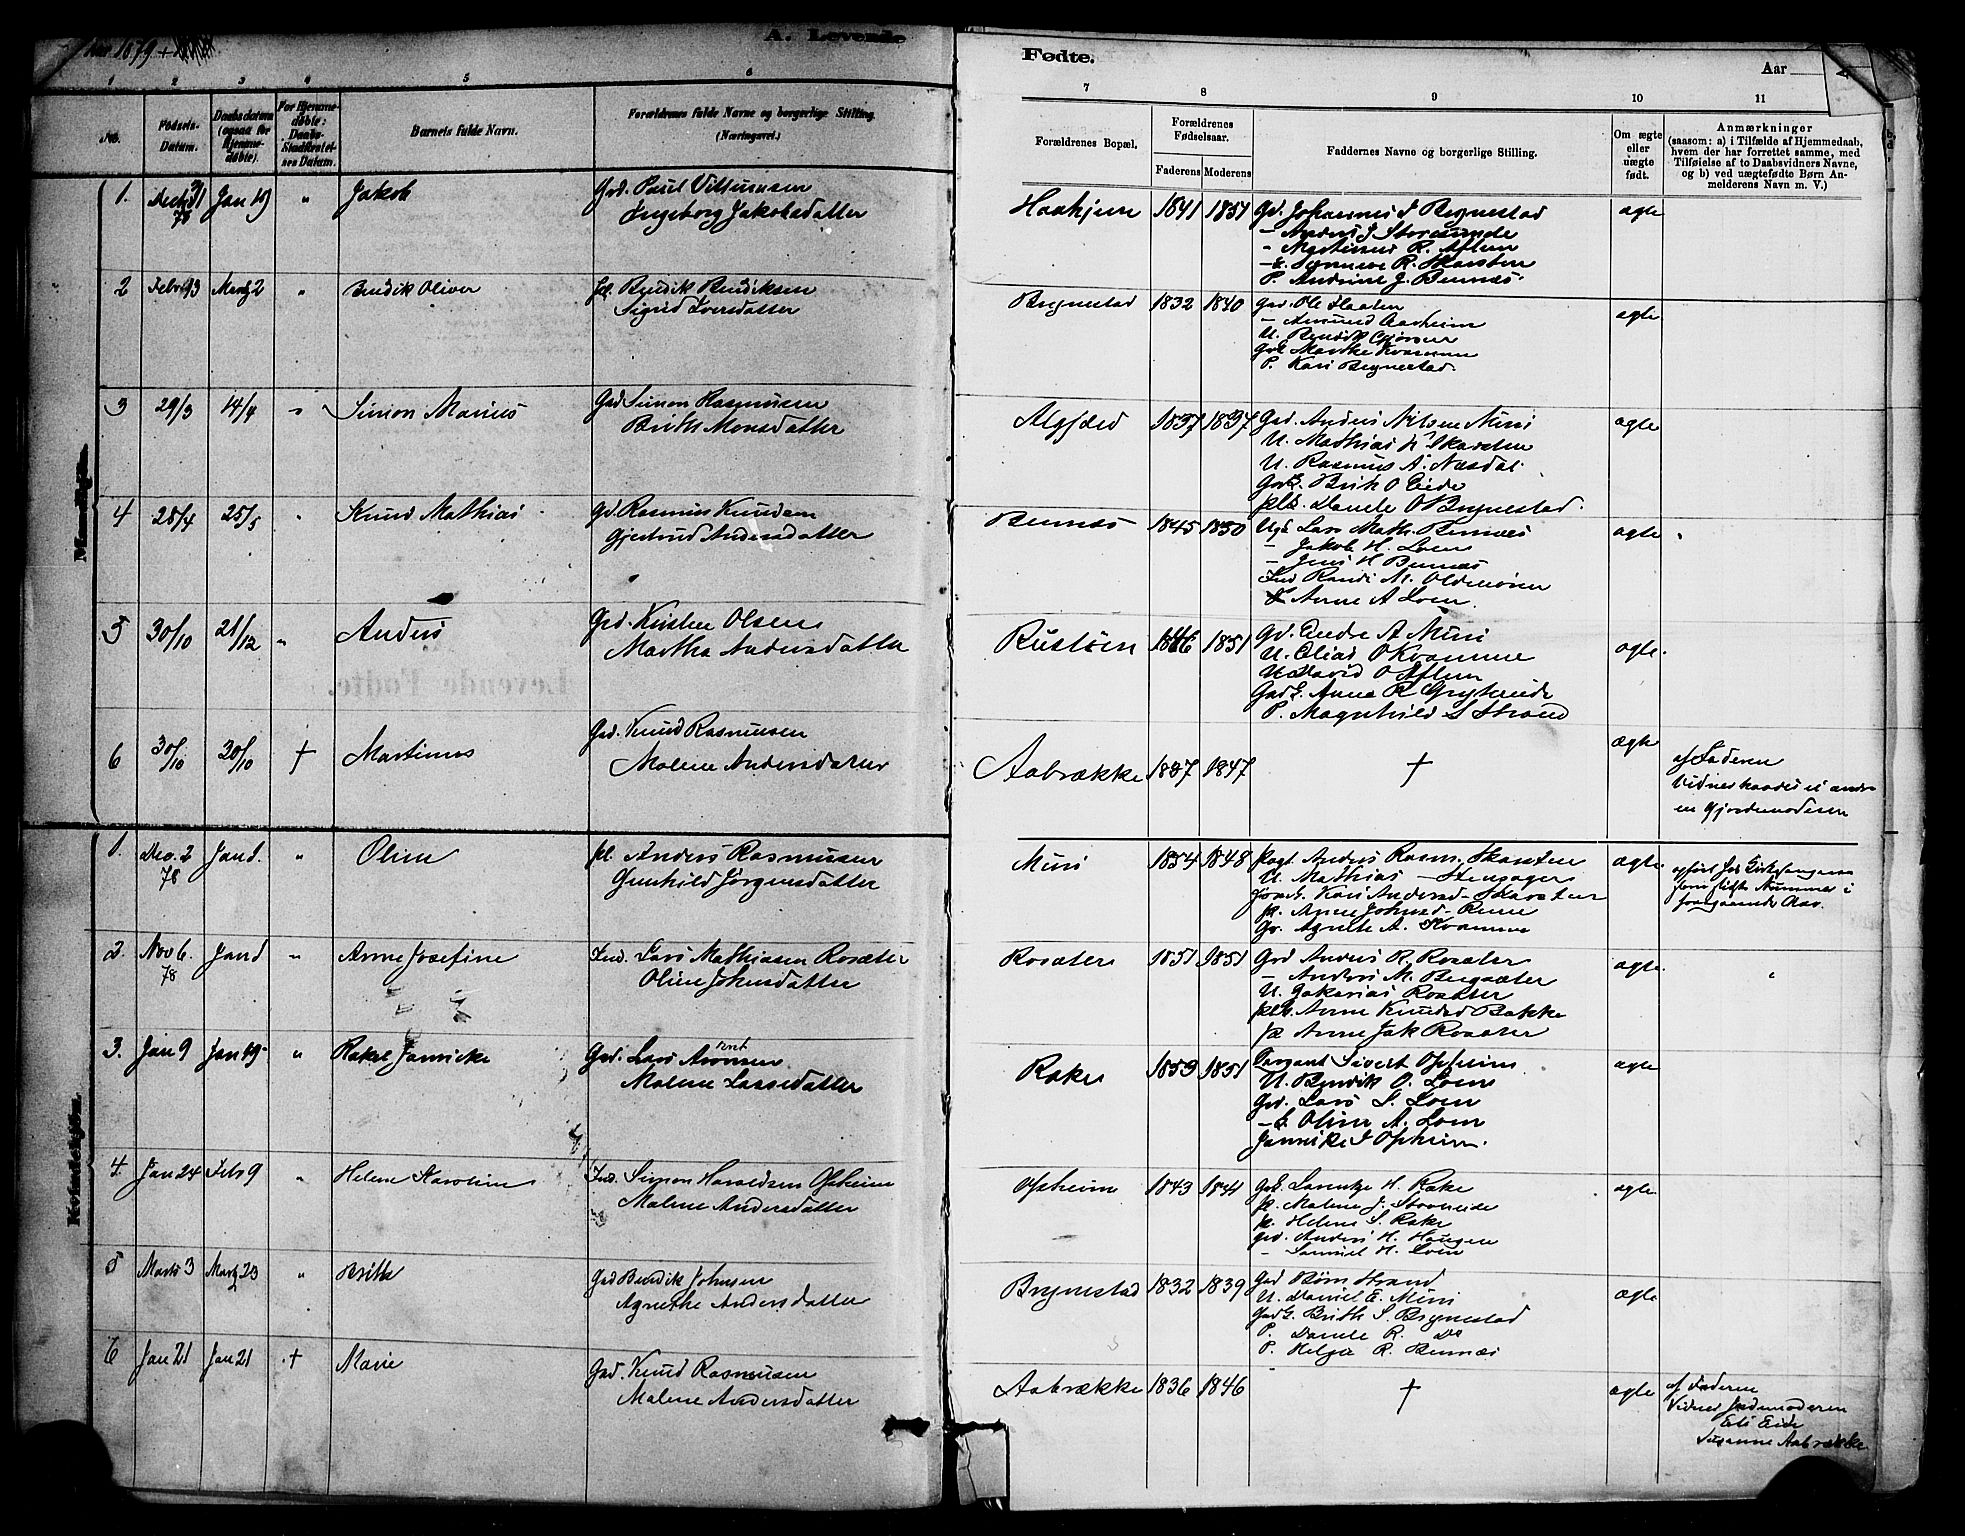 Aar 1879
A. Levende
Fødte.
Aar
1 2 3 4 5 6
7 8 9 10 11
No.
Fødsels-
Datum.
Daabsdatum
(ogsaa for
Hjemme-
døbte).
For Hjemme-
døbte:
Daabs-
Stadfæstel-
ses Datum.
Barnets fulde Navn.
Forældrenes fulde Navne og borgerlige Stilling
(Næringsvei.)
Forældrenes Bopæl.
Forældrenes
Fødselsaar.
Faderens Moderens
Faddernes Navne og borgerlige Stilling.
Om ægte
eller
uægte
født.
Anmærkninger
(saasom: a) i Tilfælde af Hjemmedaab,
hvem der har forrettet samme, med
Tilføielse af to Daabsvidners Navne,
og b) ved uægtefødte Børn An-
melderens Navn m. V.)
Mandkjøn.
1. Decb 31 78 Jan 19 " Jakob
Ingeborg Jakobsdatter
1841 1851 Gd. Johannes J Brynestad
- Anders J Storesunde
- Martinus R. Aflem
P. Andrine J. Bennæs.
ægte
2 Febr 13 Marts 2 " Bendik Oliver
pl. Bendik Bendiksen
Sigrid Iversdatter
Brynestad 1832 1840
- Aasheim
P. Kari Brynestad.
ægte
3 29/3 14/4 " Simon Marius
Gd Simon Rasmussen
Brith Monsdatter
1837 1837 Gd. Anders Nilsen Muri
U. Mathias Skarsten
U. Rasmus A. Næsdal.
GdE. Brith O Eide
O Brynestad.
ægte
4 25/4 25/5 " Knud Mathias
Gd Rasmus Knudsen
Gjertrud Andersdatter
Bennæs 1845 1850 Lars Math. Bennæs
- Jakob H. Loen
- Jens H Bennæs
Ind Randi M. Oldenøren
Anne A Loen.
ægte
5 30/10 21/12 " Anders
Gd. Kristen Olsen
Martha Andersdatter
Rustøen 1851 Gd. Endre A Muri
U. Elias O Kvamme
U David O Aflem
GdE. Anne R Gryteride
P. Magnhild S Strand
ægte.
Levende Fødte.
6 30/10 30/10 † Martinus
Gd. Knud Rasmussen
Malene Andersdatter
Aabrække 1847 †
ægte
af Faderen
en Gjordemoderen
Kvindekjøn.
1. Dec. 2 78 Jan 1. " Oline
pl. Anders Rasmussen
Gunhild Jørgensdatter
Muri 1854 1848 Anders Rasm. Skarsten
U. Mathias - Stensager
Kari Andersd - Skarsten
p. Anne Johnsd - Renne
Gd. Agnete A. Kvamme
ægte.
foregaaende Aar.
2. Nov 6. 78 Jan 1 " Anne Josefine
Ind. Lars Mathiassen Rosæter
Oline Johnsdatter
Rosæter 1851 1851 Gd Anders R. Rosæter
- Anders M. Bergsæter
U. Zakarias Rosæter
Anne Knudsd Bakke
p. Anne Jak Rosæter
ægte. "
3. Jan 9 Jan 19 " Rakel Jannicke
Gd. Lars
Malene Larsedatter
Rake 1853 1851 Sergant Sivert Opheim
U. Bendik O. Loen
Gd. Lars S. Loen
-E. Oline A. Loen
Jannike J Opheim.
ægte
4. Jan 24 Feb 9 " Helene Karoline
Ind. Simon Haraldsen Opheim
Malene Andersdatter
Opheim 1843 1841 GdE. Lorentze H. Rake
p. Malene J. Storheide
p. Helene S. Rake
Gd. Anders H. Haugen
- Samuel H. Loen
ægte
5 Marts 3 Marts 23 " Brithe
Gd Bendik Johnsen
Agnethe Andersdatter
Brynestad 1832 1839 Gd Børn Strand
U. Daniel E. Muri
GdE. Brith S. Brynestad
P. R. Do
P. Helga R. Bennæs
ægte
6 Jan 21 Jan 21 † Marie
Gd. Knud Rasmussen
Malene Andersdatter
Aabrække 1836 1846 †
ægte
af Faderen
Vidner Jordemoderen
Eli Eide
Susanne Aabrække